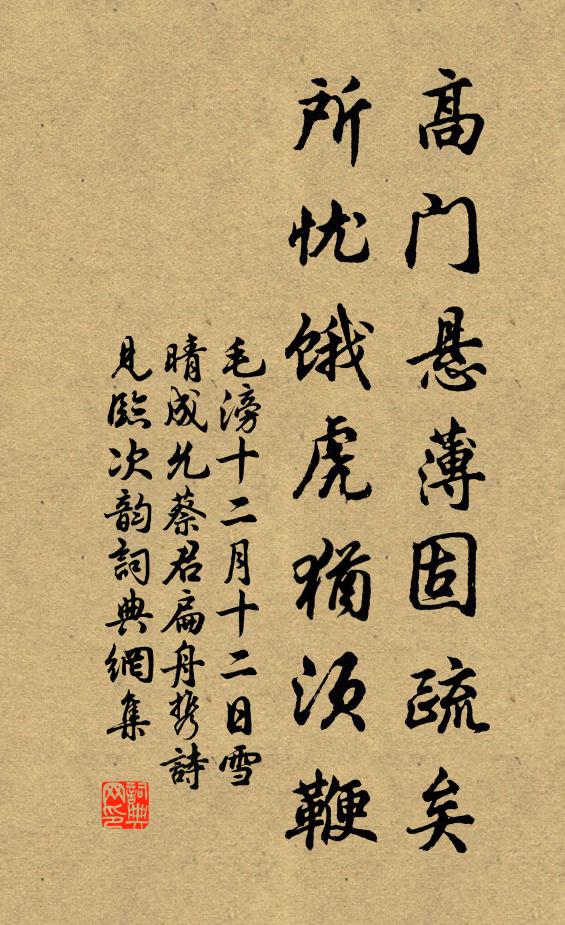 高门悬薄固疏矣
所忧饿虎犹须鞭
毛滂十二月十二日雪
晴成允蔡君扁舟携詩
见临次韵詞典網集
詞典
网印